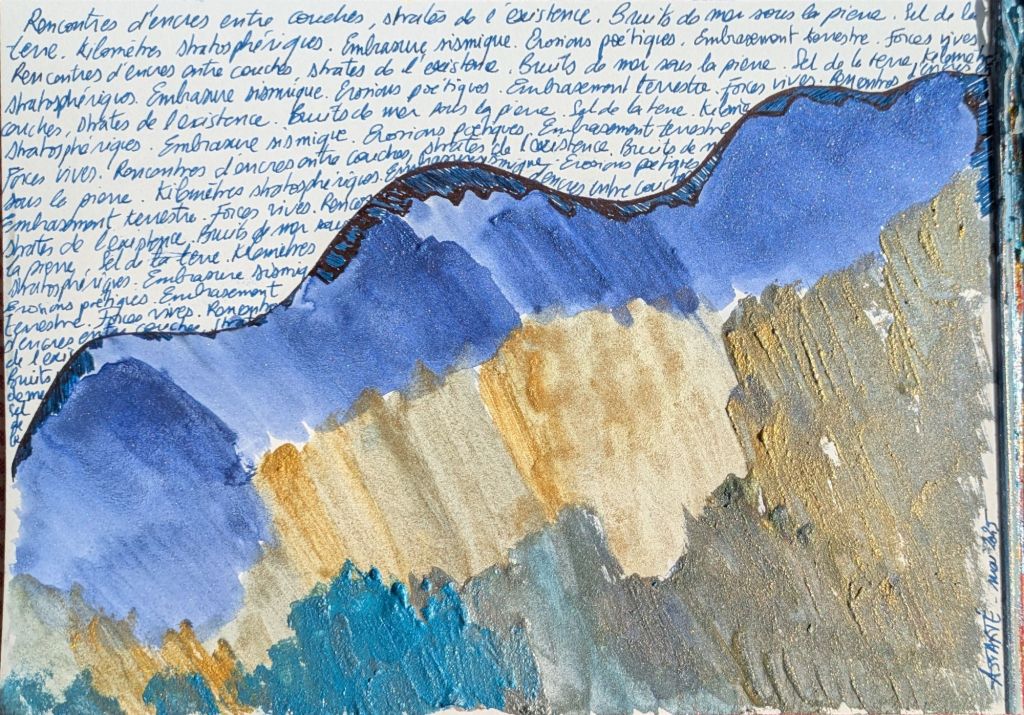 Rencontres d'encres entre couches, strates de l'existence. Bruits de mer sous la pierre. Sel de la
terre. Kilomètres stratosphériques. Embrasure sismique. Erosions poétiques. Embrasement terrestre. Forces vives
Rencontres d'encres entre couches, strates de l'existence. Bruits de mer sous la pierre. Sel de la terre, Kilomè
stratosphériques. Embrasure sismique. Erosions poétiques. Embrasement terrestre. Forces vives. Rencontres d'encres
couches, strates de l'existence. Bruits de mer sous la pierre. Sel de la terre. Kilomè
stratosphériques. Embrasure sismique. Erosions poétiques. Embrasement terrestre
Forces vives. Rencontres d'encres entre couches, strates de l'existence. Bruits de m
sous la pierre. Kilomètres stratosphériques. Embrasure sismique. Erosions poétiques
Embrasement terrestre. Forces vives. Renco d'encres entre couc
strates de l'existence, Bruits de mer sous
la pierre, Sel de la terre. Kilomètres
stratosphériques. Embrasure sismiq
Erosions poétiques. Embrasement
terrestre. Forces vives. Rencontre
d'encres entre couches, stra
de l'exis
Bruits
de me
Sel
de
la
ASTARTÉ - mai 2025